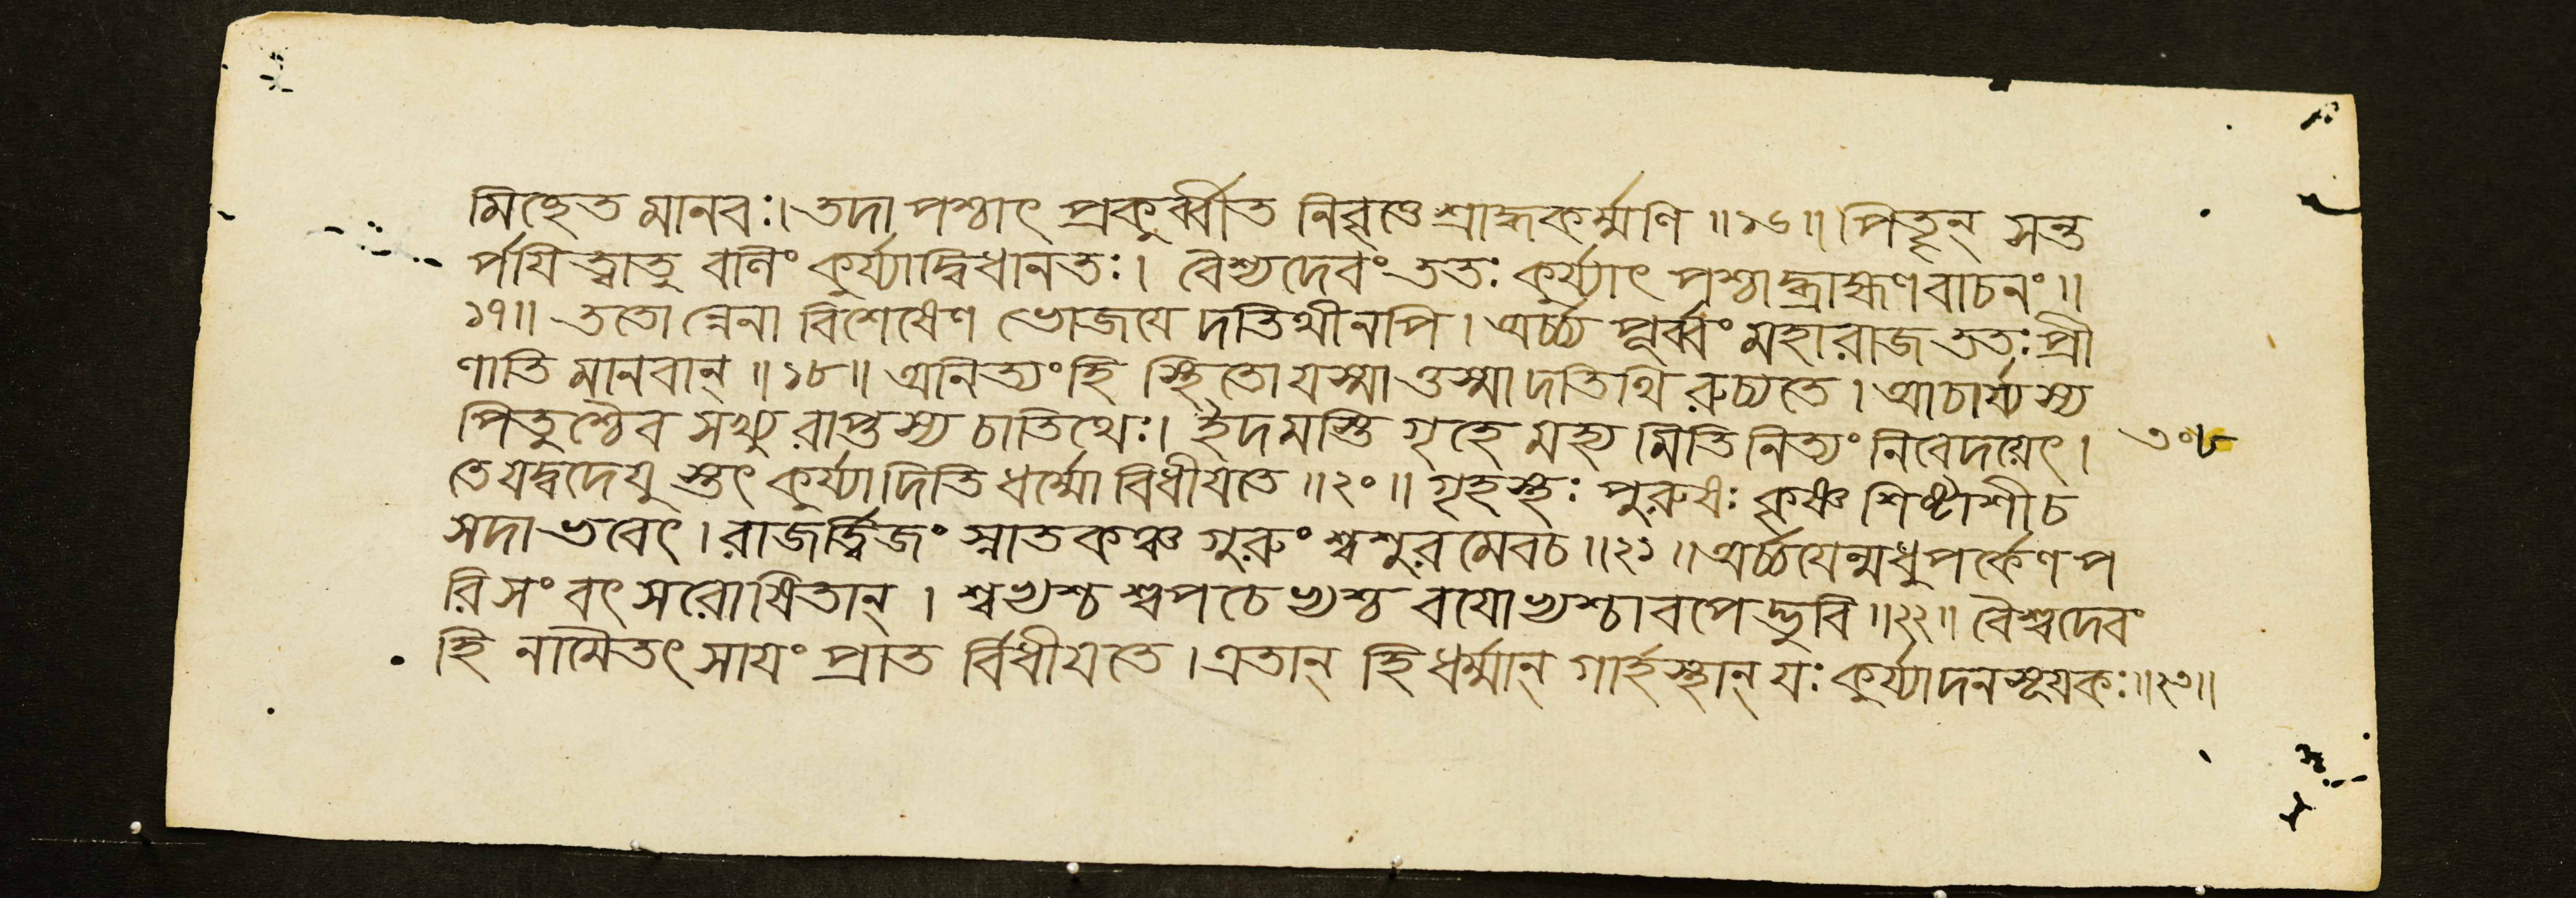 মিচ্ছেত মানবঃ। তদা পশ্চাৎ প্রকুর্ব্বীত নিবৃত্তে শ্রাদ্ধকর্ম্মণি ॥১৬॥ পিতৄন্ সন্ত
র্পযিত্বাতু বলিং কুর্য্যাদ্বিধানতঃ। বৈশ্যদেবং ততঃ কুর্য্যাৎ পশ্চাদ্ব্রাহ্মণবাচনং॥
১৭॥ ততো ন্নেনা বিশেষেণ ভোজযে দতিথীনপি। অর্চ্চ্য পূর্ব্বং মহারাজ ততঃ প্রী
ণাতি মানবান্ ॥১৮॥ অনিত্যংহি স্থিতো যস্মা ত্তস্মা দতিথি রুচ্যতে। আচার্য্যস্য
পিতুশ্চৈব সখ্যু রাপ্তস্য চাতিথেঃ। ইদমস্তি গৃহে মহ্য মিতি নিত্যং নিবেদয়েৎ। ৩০৮
তে যদ্বদেযু স্তৎ কুর্য্যাদিতি ধর্ম্মো বিধীযতে ॥২০॥ গৃহস্থঃ পুরুষঃ কৃষ্ণ শিষ্টাশীচ
সদা ভবেৎ। রাজর্ত্ত্বিজং স্নাতকঞ্চ গুরুং শ্বশুরমেবচ ॥২১॥ অর্চ্চযেন্মধুপর্কেণ প
রিসংবৎসরোষিতান্। শ্বভ্যশ্চ শ্বপচেভ্যশ্চ বযোভ্যশ্চাবপেদ্ভুবি ॥২২॥ বৈশ্বদেবং
হি নামৈতৎ সাযং প্রাত র্বিধীযতে। এতান্ হি ধর্ম্মান্ গার্হস্থান্ যঃ কুর্য্যাদনসূযকঃ॥২৩॥